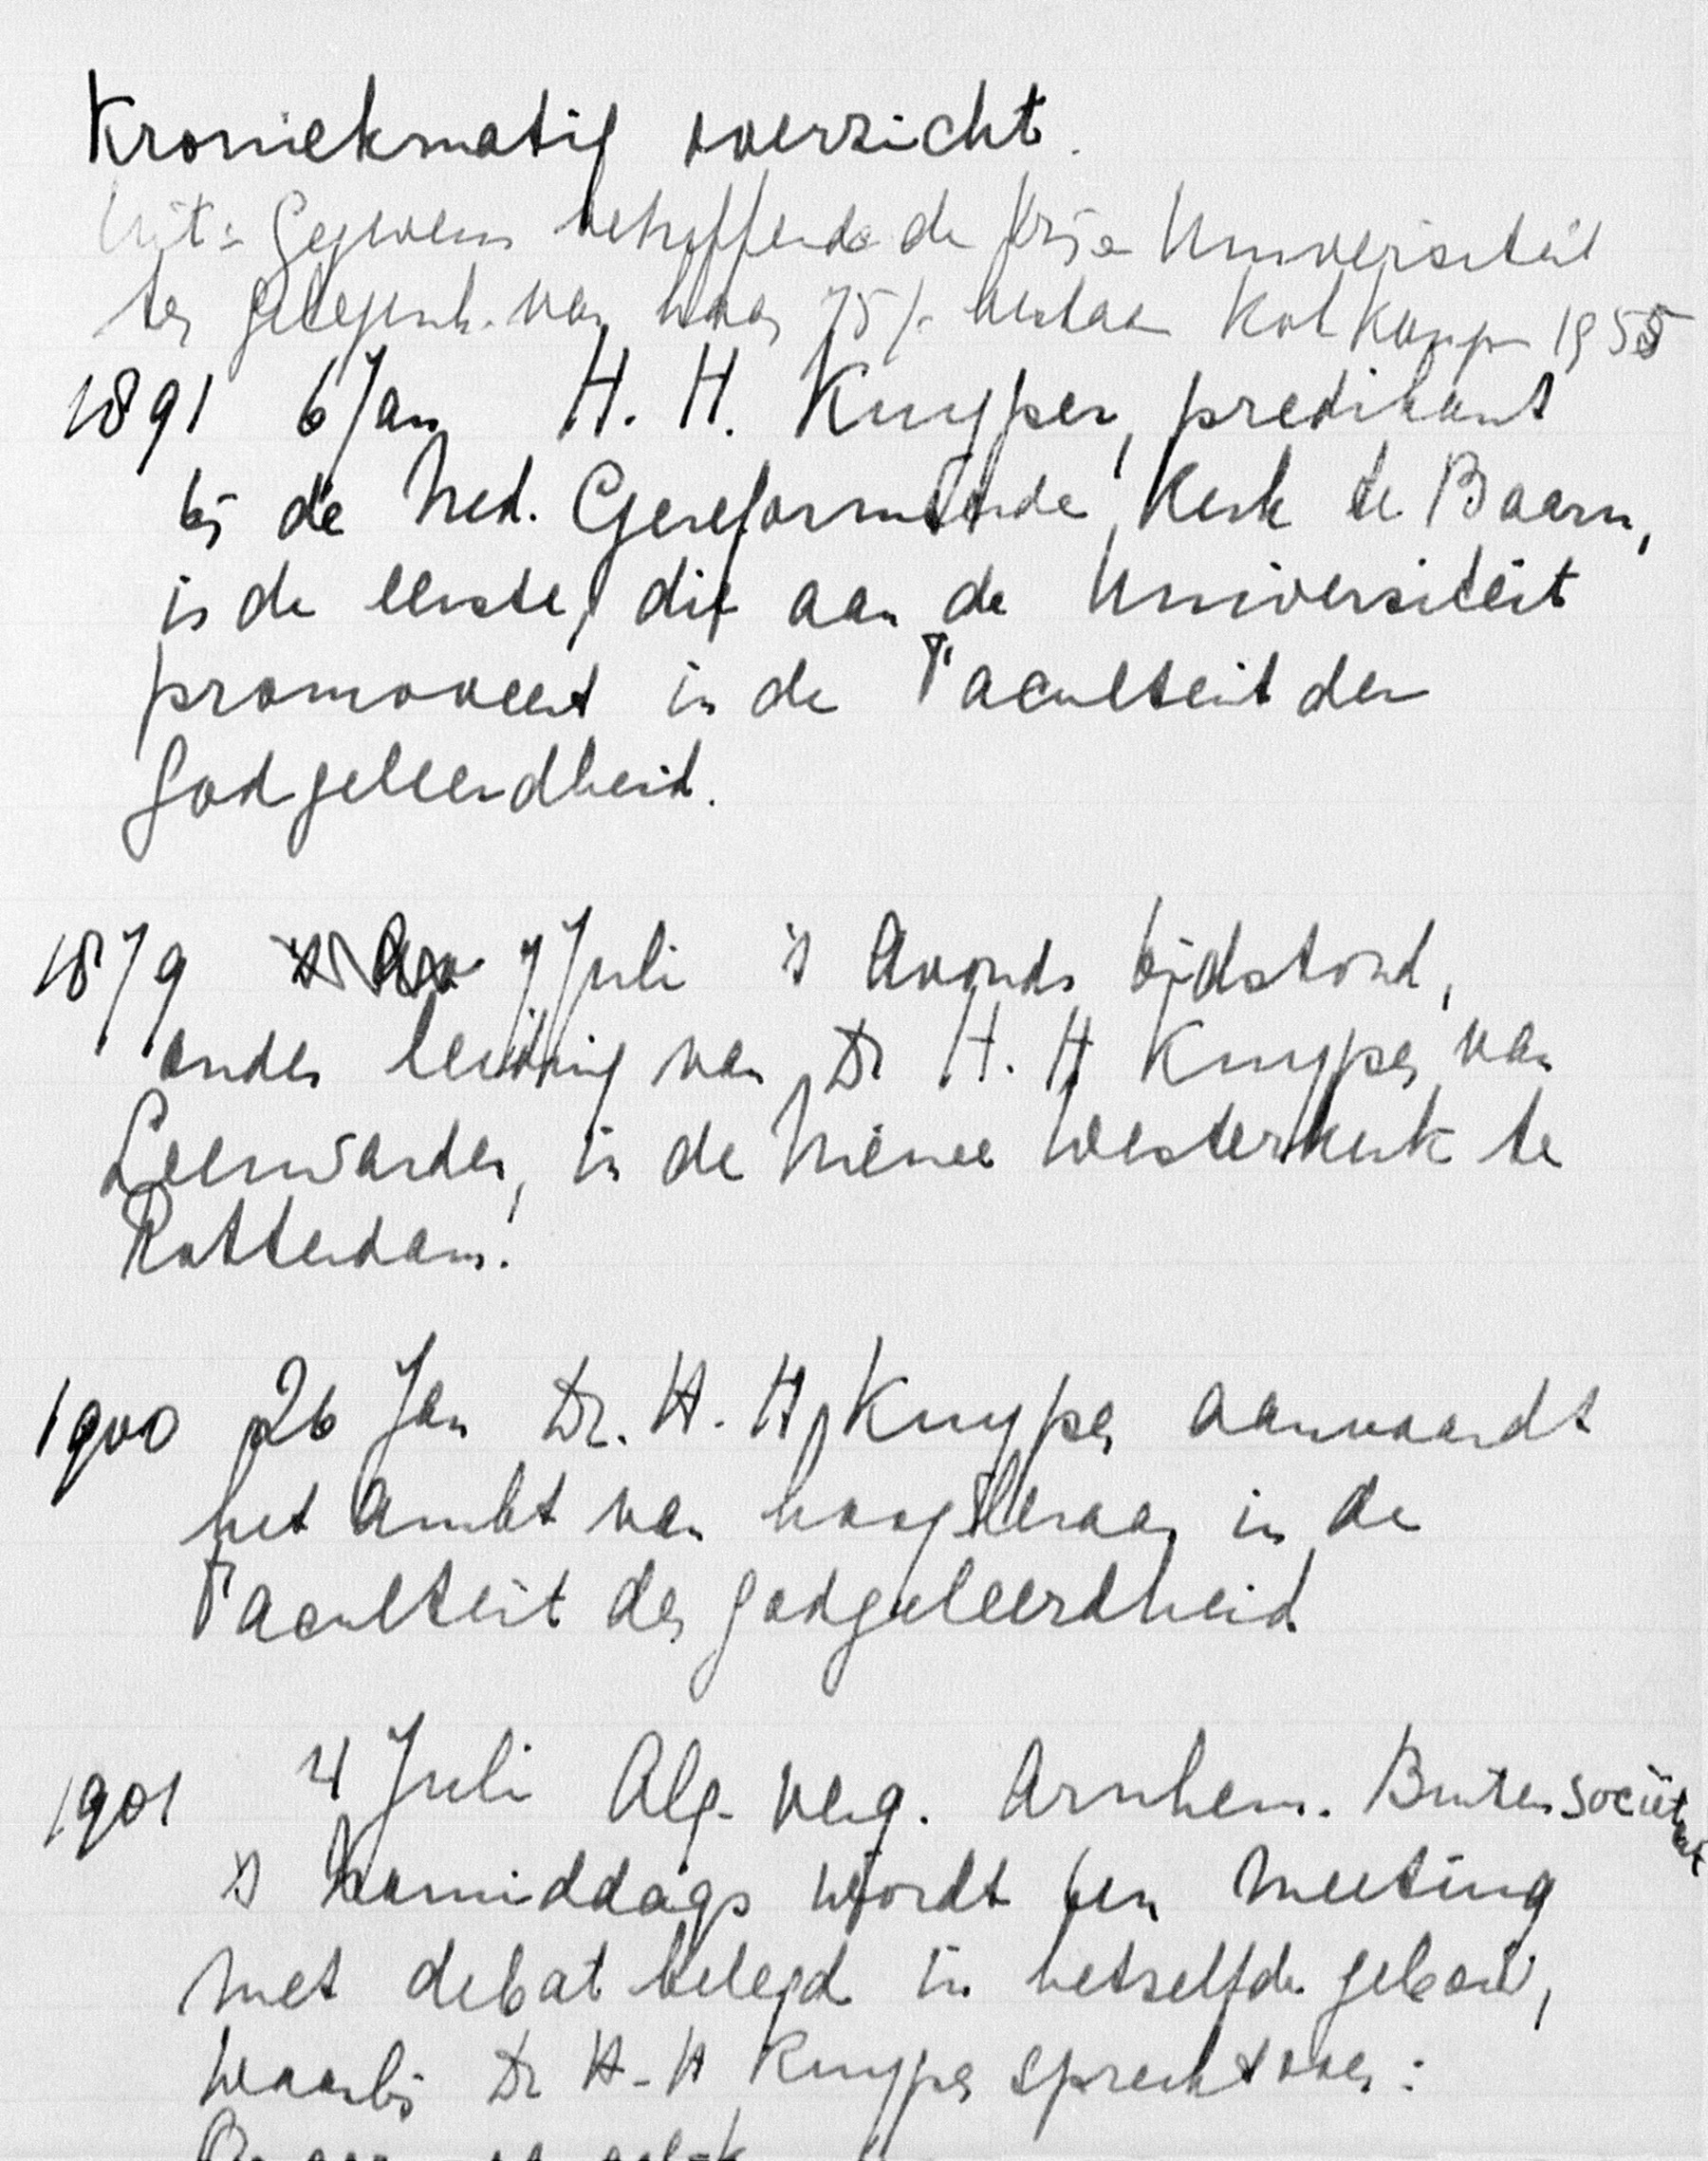 Kroniekmatig overzicht.
Uit: Gegevens betreffende de Vrije Universiteit
ter gelegenh. van haar 75 j. bestaan Kok Kampen 1955
1891 6 Jan H. H. Kuyper, predikant
bij de Ned. Gereformeerde Kerk te Baarn,
is de eerste, die aan de Universiteit
promoveert in de Faculteit der
Godgeleerdheid.
1879 7 Juli 's Avonds bidstond,
onder leiding van Dr H. H Kuyper van
Leeuwarden, in de Nieuwe Westerkerk te
Rotterdam.
1900 26 Jan Dr. H. H Kuyper aanvaardt
het ambt van hoogleraar in de
Faculteit der godgeleerdheid
1901 4 Juli Alg. Verg. Arnhem. Buitensociëteit
's Namiddags wordt een meeting
met debat belegd in hetzelfde gebouw,
waarbij Dr H-H Kuyper spreekt over: